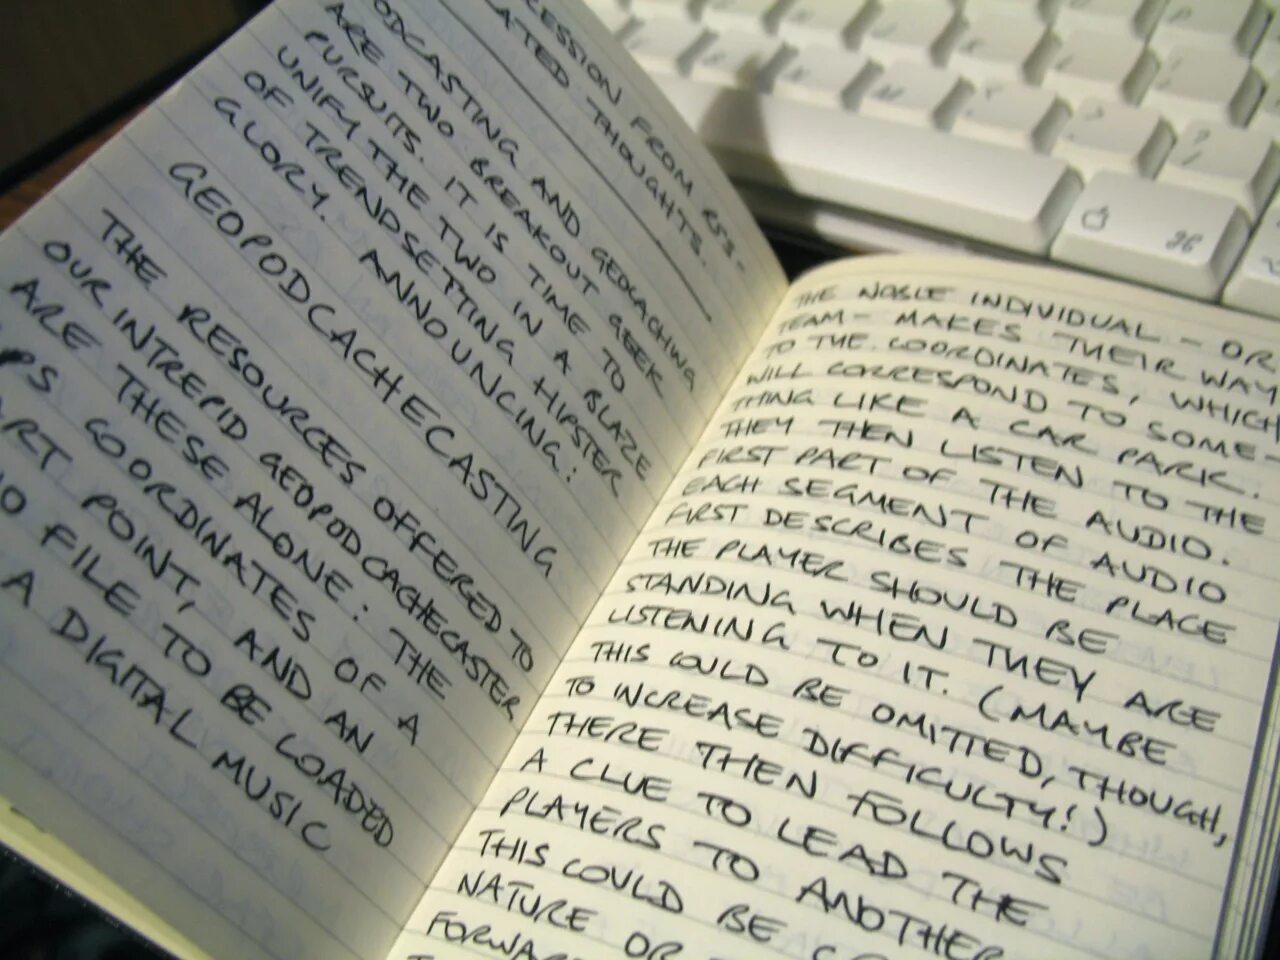 ESSION FROM RSS-
ATED THOUGHTS.
ODCASTING AND GEOCACHING
ARE TWO BREAKOUT GEEK
PURSUITS. IT IS TIME TO
UNIFY THE TWO IN A BLAZE
OF TRENDSETTING HIPSTER
GLORY. ANNOUNCING:
GEOPODCACHECASTING
THE RESOURCES OFFERED TO
OUR INTREPID GEOPODCACHECASTER
ARE THESE ALONE: THE
PS COORDINATES OF A
ART POINT, AND AN
IO FILE TO BE LOADED
A DIGITAL MUSIC
THE NOBLE INDIVIDUAL - OR
TEAM - MAKES THEIR WAY
TO THE COORDINATES, WHICH
WILL CORRESPOND TO SOME-
THING LIKE A CAR PARK.
THEY THEN LISTEN TO THE
FIRST PART OF THE AUDIO.
EACH SEGMENT OF AUDIO
FIRST DESCRIBES THE PLACE
THE PLAYER SHOULD BE
STANDING WHEN THEY ARE
LISTENING TO IT. (MAYBE
THIS COULD BE OMITTED, THOUGH,
TO INCREASE DIFFICULTY!)
THERE THEN FOLLOWS
A CLUE TO LEAD THE
PLAYERS TO ANOTHER
THIS COULD BE
NATURE OR
FORWA
⌘